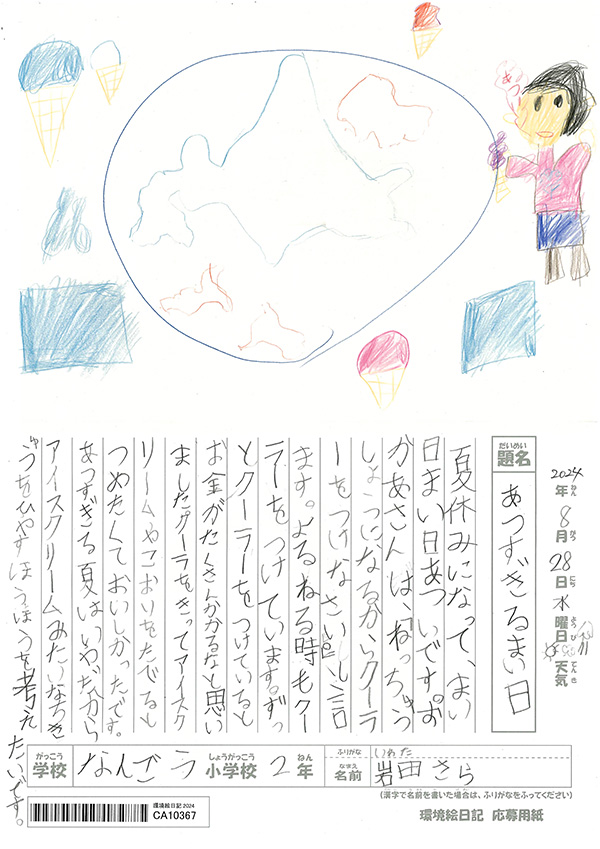 あつ
2024年ねん8月がつ28日にち水曜日ようび天気てんき
だいめい
題名
あつすぎるまい日
夏休みになって、まい
日まい日あついです。お
かあさんは、ねっちゅう
しょうになるからクーラ
ーをつけなさいと言
ます。よるねる時もクー
ラーをつけています。ずっ
とクーラーをつけていると
お金がたくさんかかるなと思い
ましたクーラをきってアイスク
リームやこおりをたべると
つめたくておいしかったです。
あつすぎる夏はいやだから
アイスクリームみたいなちき
ゅうをひやすほうほうを考えたいです。
がっこう
学校
なんごう
しょうがっこう
小学校
2
ねん
年
ふりがな
いわた
なまえ
名前
岩田さら
(漢字で名前を書いた場合は、ふりがなをふってください)
環境絵日記2024
CA10367
環境絵日記 応募用紙